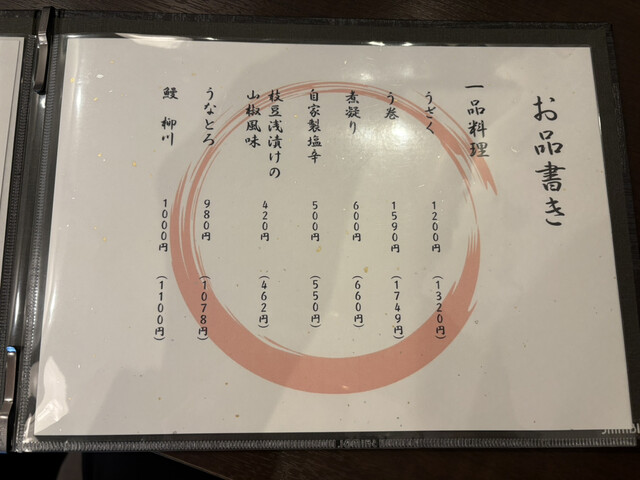 お品書き
一品料理
うざく 1200円 (1320円)
う巻 1590円 (1749円)
煮凝り 600円 (660円)
自家製塩辛 500円 (550円)
枝豆浅漬けの
山椒風味 420円 (462円)
うなとろ 980円 (1078円)
鰻 柳川 1000円 (1100円)